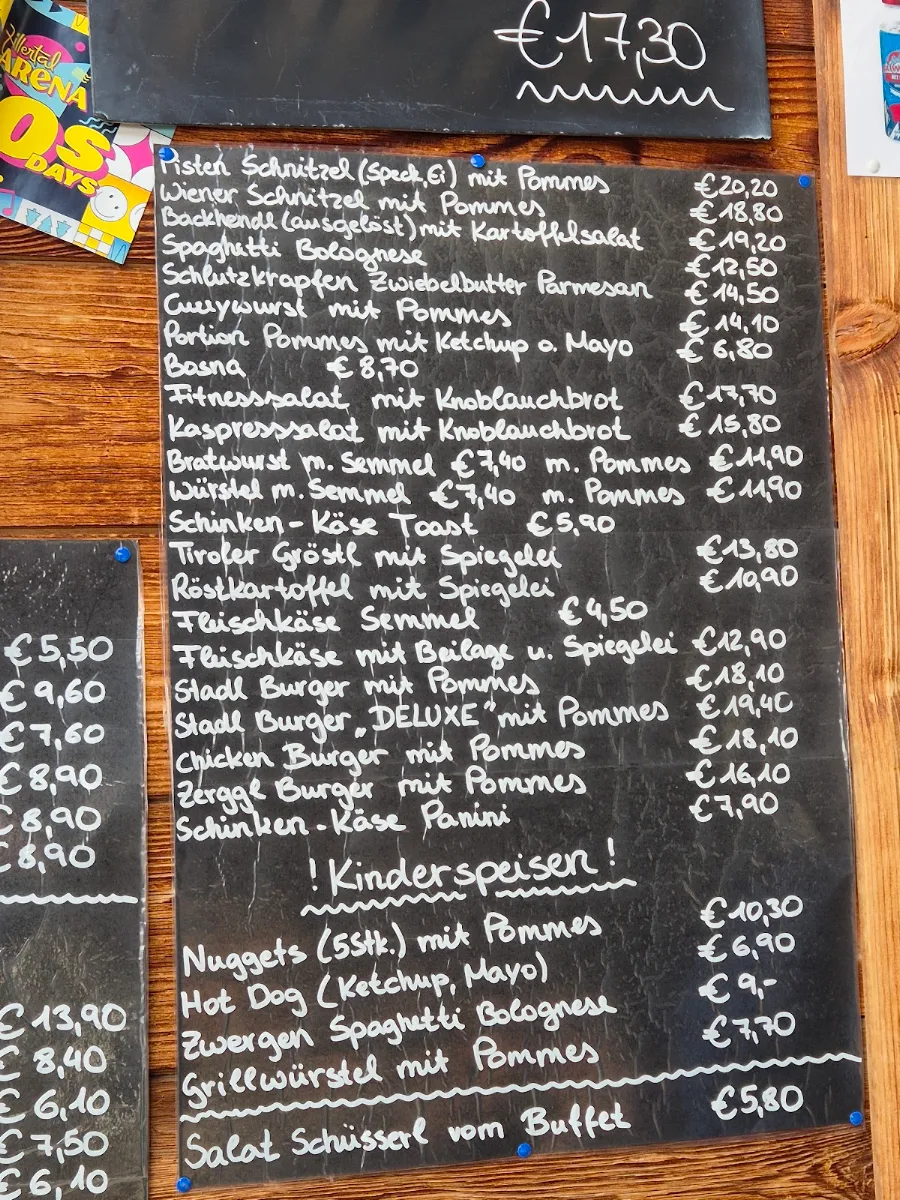 Zillertal
ARENA
OS
DAYS
€ 17,30
Pisten Schnitzel (Speck, Ei) mit Pommes € 20,20
Wiener Schnitzel mit Pommes € 18,80
Backhendl (ausgelöst) mit Kartoffelsalat € 19,20
Spaghetti Bolognese € 12,50
Schlutzkrapfen Zwiebelbutter Parmesan € 14,50
Currywurst mit Pommes € 14,10
Portion Pommes mit Ketchup o. Mayo € 6,80
Bosna € 8,70
Fitnesssalat mit Knoblauchbrot € 17,70
Kaspresssalat mit Knoblauchbrot € 15,80
Bratwurst m. Semmel € 7,40 m. Pommes € 11,90
Würstel m. Semmel € 7,40 m. Pommes € 11,90
Schinken - Käse Toast € 5,90
Tiroler Gröstl mit Spiegelei € 13,80
Röstkartoffel mit Spiegelei € 10,90
Fleischkäse Semmel € 4,50
Fleischkäse mit Beilage u. Spiegelei € 12,90
Stadl Burger mit Pommes € 18,10
Stadl Burger „DELUXE" mit Pommes € 19,40
Chicken Burger mit Pommes € 18,10
Zerggl Burger mit Pommes € 16,10
Schinken - Käse Panini € 7,90
! Kinderspeisen !
Nuggets (5Stk.) mit Pommes € 10,30
Hot Dog (Ketchup, Mayo) € 6,90
Zwergen Spaghetti Bolognese € 9,-
Grillwürstel mit Pommes € 7,70
Salat Schüsserl vom Buffet € 5,80
€ 5,50
€ 9,60
€ 7,60
€ 8,90
€ 8,90
€ 8,90
€ 13,90
€ 8,40
€ 6,10
€ 7,50
€ 6,10